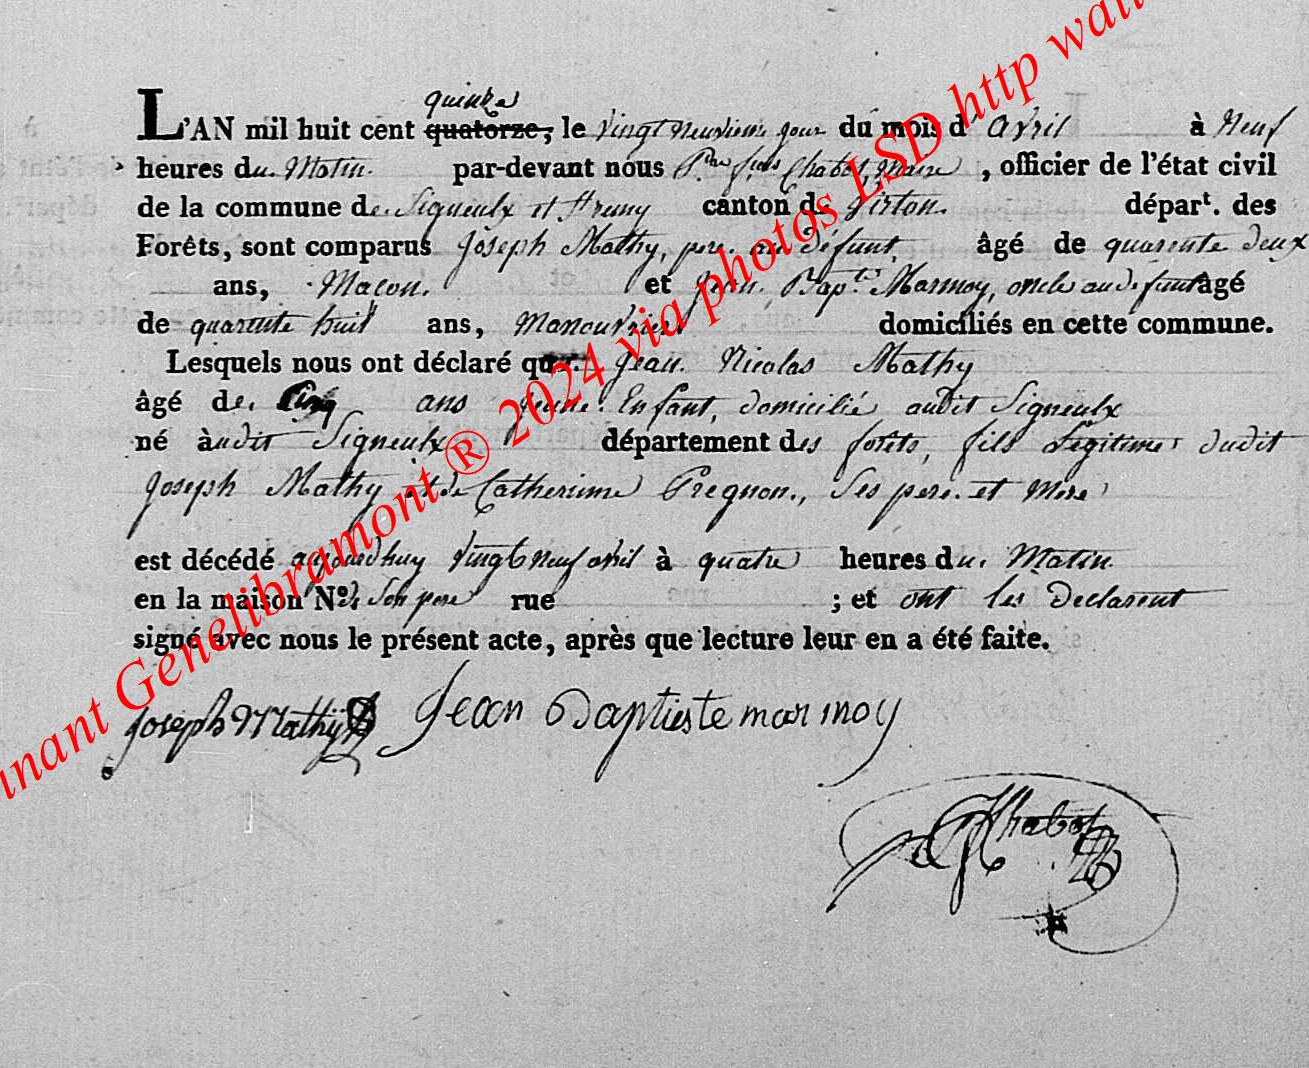 quinze
L'AN mil huit cent quatorze, le vingt neuvieme jour du mois d' avril à Neuf
heures du Matin. par-devant nous Pre. fois Chabot, Maire, officier de l'état civil
de la commune de Signeulx et canton de Virton. départ. des
Forêts, sont comparus Joseph Mathy, pere au defunt, âgé de quarente deux
ans, Macon. et Jean Bapte. Marmoy, oncle au defunt âgé
de quarente huit ans, Manouvrier domiciliés en cette commune.
Lesquels nous ont déclaré que Jean Nicolas Mathy
âgé de Cinq ans jeune Enfant, domicilié audit Signeulx
né àudit Signeulx département des forêts, fils Légitime dudit
Joseph Mathy et de Catherinne Pregnon, Ses pere et Mere
est décédé aujourdhuy vingt neuf avril à quatre heures du Matin
en la maison No. de Son pere rue ; et ont les Declarent
signé avec nous le présent acte, après que lecture leur en a été faite.
Joseph Mathy Jean Baptieste marmoy
Chabot
anant Genelibramont ® 2024 via photos LSD http wall